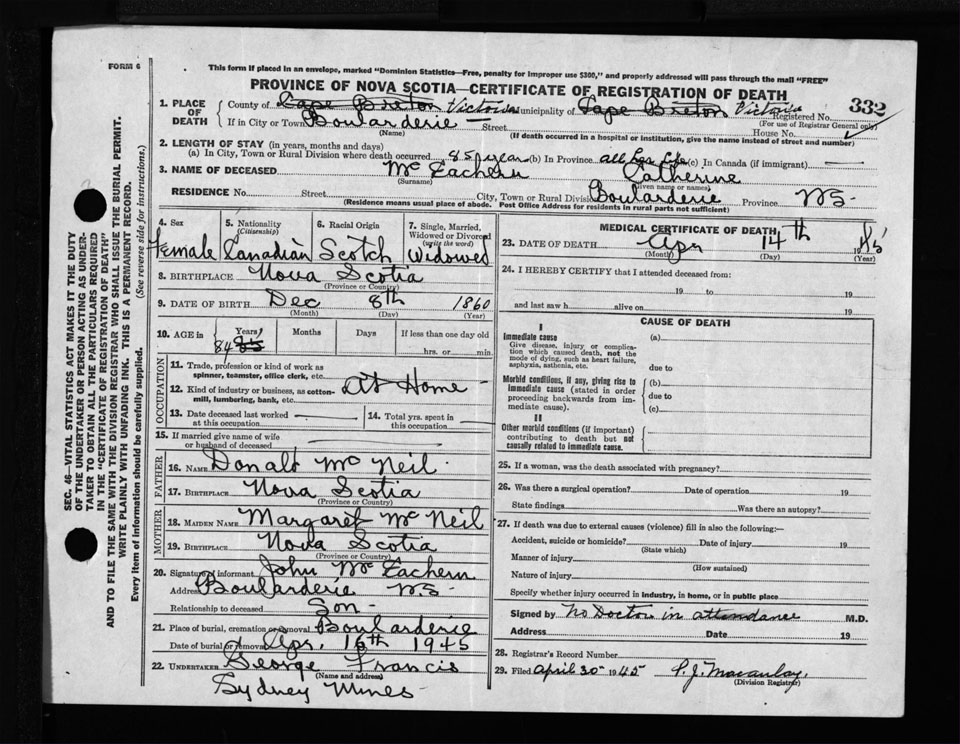 FORM 6
This form if placed in an envelope, marked "Dominion Statistics—Free, penalty for improper use $300," and properly addressed will pass through the mail "FREE"
PROVINCE OF NOVA SCOTIA—CERTIFICATE OF REGISTRATION OF DEATH
332
1. PLACE OF DEATH County of Cape Breton Victoria Municipality of Cape Breton Victoria Registered No.
(For use of Registrar General only)
If in City or Town Boularderie — Street House No.
(Name) (If death occurred in a hospital or institution, give the name instead of street and number)
2. LENGTH OF STAY (in years, months and days)
(a) In City, Town or Rural Division where death occurred 85 years (b) In Province all her life (c) In Canada (if immigrant)
3. NAME OF DECEASED Mc Eachern Catherine
(Surname) (Given name or names)
RESIDENCE No. Street City, Town or Rural Division Boularderie Province N.S.
(Residence means usual place of abode. Post Office Address for residents in rural parts not sufficient)
4. Sex Female
5. Nationality (Citizenship) Canadian
6. Racial Origin Scotch
7. Single, Married, Widowed or Divorced (write the word) Widowed
8. BIRTHPLACE Nova Scotia
(Province or Country)
9. DATE OF BIRTH Dec 8th 1860
(Month) (Day) (Year)
10. AGE in Years Months Days If less than one day old
84 85 hrs. or min.
OCCUPATION
11. Trade, profession or kind of work as spinner, teamster, office clerk, etc.
12. Kind of industry or business, as cotton-mill, lumbering, bank, etc. At Home
13. Date deceased last worked at this occupation
14. Total yrs. spent in this occupation
15. If married give name of wife or husband of deceased
FATHER
16. NAME Donald Mc Neil
17. BIRTHPLACE Nova Scotia
(Province or Country)
MOTHER
18. MAIDEN NAME Margaret Mc Neil
19. BIRTHPLACE Nova Scotia
(Province or Country)
20. Signature of informant John Mc Eachern
Address Boularderie N.S
Relationship to deceased Son
21. Place of burial, cremation or removal Boularderie
Date of burial or removal Apr. 16th 1945
22. UNDERTAKER George Francis
(Name and address)
Sydney Mines
MEDICAL CERTIFICATE OF DEATH
23. DATE OF DEATH Apr 14th 1945
(Month) (Day) (Year)
24. I HEREBY CERTIFY that I attended deceased from:
19 to 19
and last saw h alive on 19
CAUSE OF DEATH
I
Immediate cause (a)
Give disease, injury or complication which caused death, not the mode of dying, such as heart failure, asphyxia, asthenia, etc.
due to
Morbid conditions, if any, giving rise to immediate cause (stated in order proceeding backwards from immediate cause).
(b)
due to
(c)
II
Other morbid conditions (if important) contributing to death but not causally related to immediate cause.
25. If a woman, was the death associated with pregnancy?
26. Was there a surgical operation? Date of operation 19
State findings Was there an autopsy?
27. If death was due to external causes (violence) fill in also the following:—
Accident, suicide or homicide? Date of injury 19
(State which)
Manner of injury
(How sustained)
Nature of injury
Specify whether injury occurred in industry, in home, or in public place
Signed by No Doctor in attendance M.D.
Address Date 19
28. Registrar's Record Number
29. Filed April 30 1945 P. J. Macaulay
(Division Registrar)
SEC. 46—VITAL STATISTICS ACT MAKES IT THE DUTY
OF THE UNDERTAKER OR PERSON ACTING AS UNDER-
TAKER TO OBTAIN ALL THE PARTICULARS REQUIRED
IN THE "CERTIFICATE OF REGISTRATION OF DEATH"
AND TO FILE THE SAME WITH THE DIVISION REGISTRAR WHO SHALL ISSUE THE BURIAL PERMIT.
WRITE PLAINLY WITH UNFADING INK. THIS IS A PERMANENT RECORD.
Every item of information should be carefully supplied. (See reverse side for instructions.)